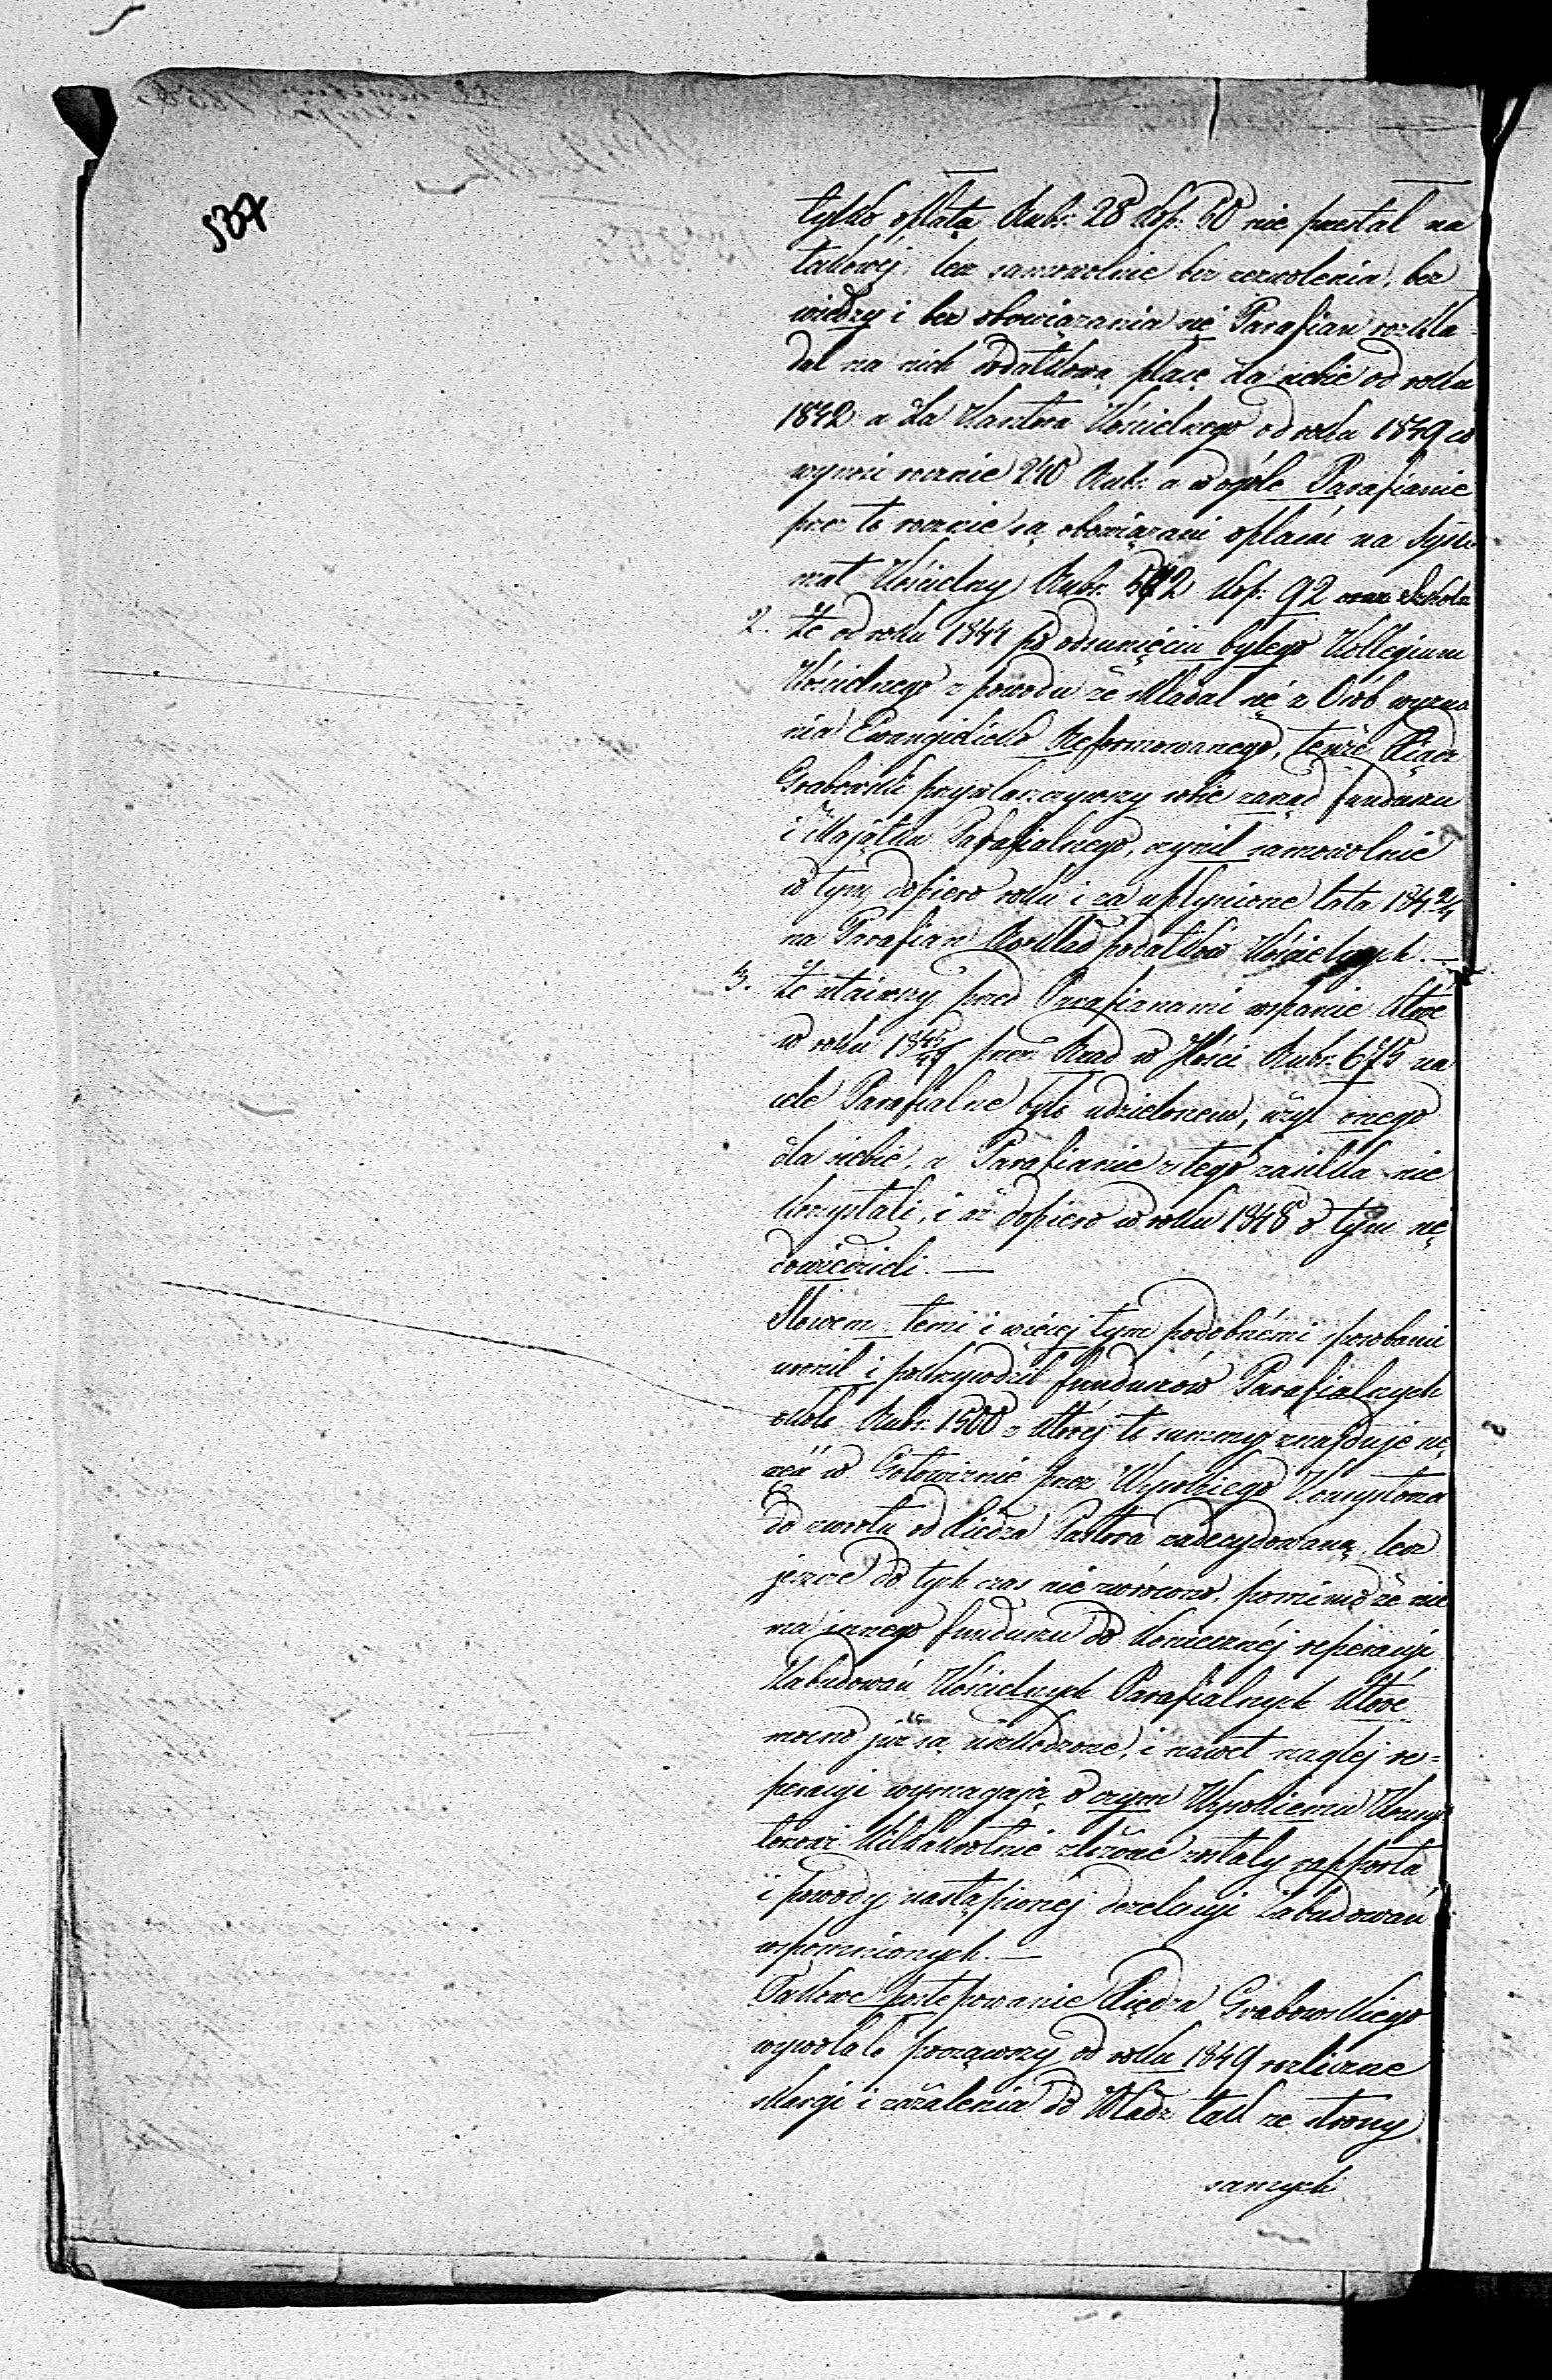 537
tylko opłatą Rubr. 28 Kop. 50 nie przestał na
takowéj, lecz samowolnie bez zezwolenia, bez
wiedzy i bez obowiązania się Parafian rozkła-
dał na nich dodatkową płacę dla siebie od roku
1842 a dla Kantora Kościelnego od roku 1849 co
wynosi rocznie 240 Rubr. a w ogóle Parafianie
przez to rocznie są obowiązani opłacać na
Kościelny Rubr. 542 Kop. 92
2. Że od roku 1844 po odsunięciu byłego Kollegium
Kościelnego z powodu że składał się z Osób wyzna
nia Ewangielicko Reformowanego, tenże Xiądz
Grabowski przywłaszczywszy sobie zarząd funduszu
i Majątku Parafialnego, czynił samowolnie
w tym dopiero roku i za upłynione lata 184 2/4
na Parafian Rozkład podatków Kościelnych. —
3. Że utaiwszy przed Parafianami wsparcie które
w roku 18 przez Rząd w Ilości Rubr. 675 na
cele Parafialne było udzielonem, użył onego
dla siebie, a Parafianie z tego zasiłku nie
korzystali, i aż dopiero w roku 1848 o tym się
dowiedzieli. —
Słowem temi i więcej tym podobnémi sposobami
uronił i pokrzywdził funduszów Parafialnych
około Rubr. 1500 z któréj to summy znajduje się
część w Gotowiznie przez Wysokiego Konsystorza
do zwrotu od Xiędza Pastora zadecydowaną, lecz
jeszcze do tych czas nie zwrócono, pomimo że nie
ma innego funduszu do koniecznéj reperacyi
Zabudowań Kościelnych Parafialnych które
mocno już są uszkodzone, i nawet nagłej re=
peracyi wymagają o czym Wysokiemu Konsys
torzowi kilkakrotnie złożone zostały rapporta
i powody nastąpionéj dezelacyi Zabudowań
wspomnionych. —
Takowe postępowanie Xiędza Grabowskiego
wywołało począwszy od roku 1849 rozliczne
skargi i zażalenia do Władz tak ze strony
samych